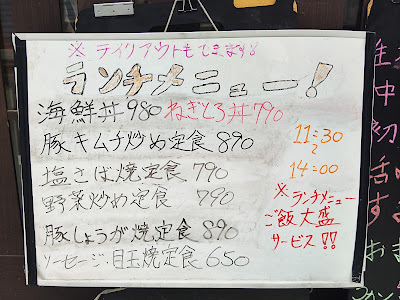 ※テイクアウトもできます!
ランチメニュー!
海鮮丼 980 ねぎとろ丼 790
豚キムチ炒め定食 890
塩さば焼定食 790
野菜炒め定食 790
豚しょうが焼定食 890
ソーセージ・目玉焼定食 650
11:30
~
14:00
※ランチメニュー
ご飯大盛
サービス!!
中
初
活
する
おま